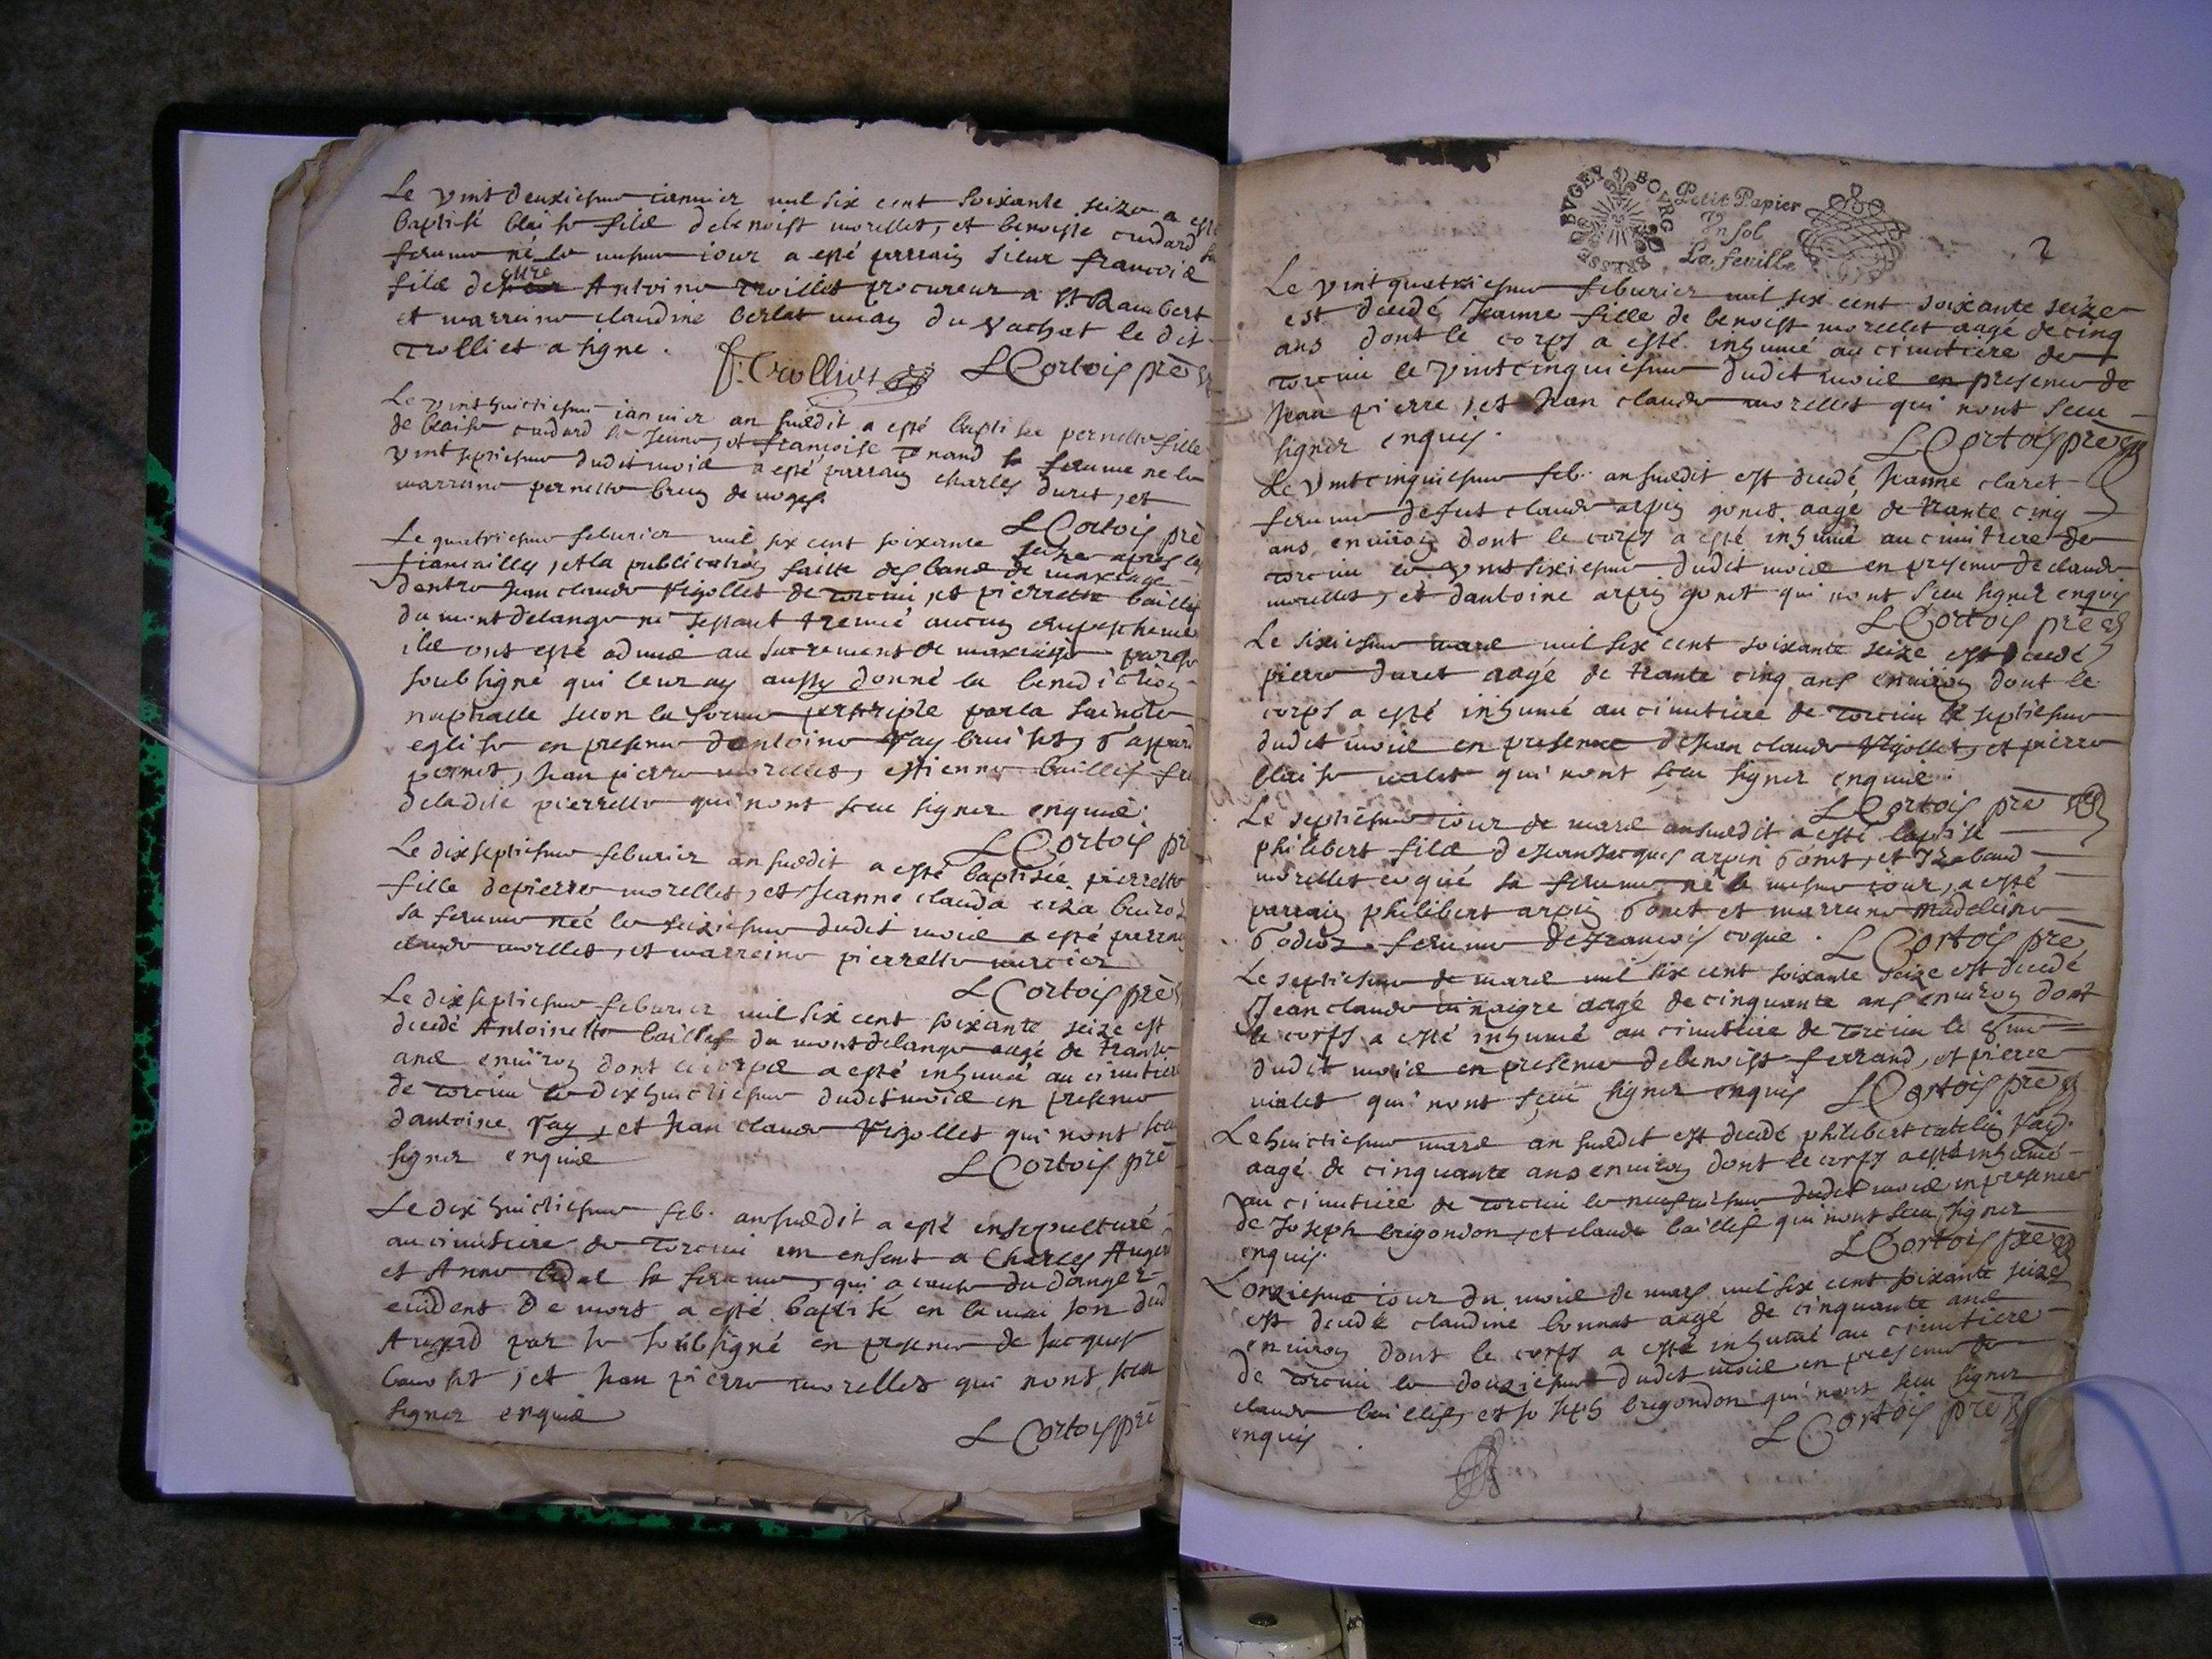 Le vintdeuxiesme ianuier mil six cent soixante seize a esté
baptisé blaise filz de benoist morellet, et benoiste cudard sa
femme né le mesme iour a esté parrain sieur françois
filz de sieur Antoine trolliet procureur a St Rambert
et marraine claudine berlet du vachat le dit
trolliet a signe.
F. Trolliet
L Cortois prè
Le vinthuictiesme ianuier an susdit a esté baptisée pernette fille
de blaise cudard le jeune, et françoise la femme ne le
vintseptiesme dudit mois a esté parrain charles duret, et
marraine pernette
L Cortois prè
Le quatriesme feburier mil six cent soixante seize apres les
fiancailles, et la publication faitte des bans de mariage
dentre jean claude Vizollet de torcieu, et pierrette baillif
du montdelange ne sestant treuué aucun empeschement
ilz ont esté admis au sacrement de mariage par le
soubsigné qui leur ay aussy donné la benediction
nuptialle selon la forme par la saincte
eglise en presence dantoine Vay
jean pierre morellet, estienne baillif
de ladite pierrette qui nont sceu signer enquis.
L Cortois pr
Le dixseptiesme feburier an susdit a esté baptisée pierrette
fille de pierre morellet, et Jeanne clauda
sa femme née le seiziesme dudit mois a esté parrain
claude morellet, et marreine pierrette mercier
L Cortois prè
Le dixseptiesme feburier mil six cent soixante seize est
decedé Antoinette baillif du montdelange aagé de trante
ans enuiron dont le corps a esté inhumé au cimitiere
de torcieu le dixhuictiesme dudit mois en presence
dantoine Vay, et jean claude Vizollet qui nont sceu
signer enquis
L Cortois prè
Le dix huictiesme feb. an susdit a esté ensepulturé
au cimitiere de torcieu un enfent a Charles Auger
et Anne sa femme, qui a cause du danger
euident de mort a esté baptisé en la maison dud
Augerd par le soubsigné en presence de jacques
et jean pierre morellet qui nont sceu
signer enquis
L Cortois prè
BVGEY BOVRG BRESSE
Petit Papier
Vn sol
La feuille
2
Le vintquatriesme feburier mil six cent soixante seize
est decedé Jeanne fille de benoist morellet aagé de cinq
ans dont le corps a esté inhumé au cimitiere de
torcieu le vintcinquiesme dudit mois en presence de
jean pierre, et jean claude morellet qui nont sceu
signer enquis.
L Cortois prè
Le vintcinquiesme feb. an susdit est decedé jeanne claret
femme de fut claude arpin gonet aagé de trante cinq
ans enuiron dont le corps a esté inhumé au cimitiere de
torcieu le vintsixiesme dudit mois en presence de claude
morellet, et dantoine arpin gonet qui nont sceu signer enquis
L Cortois prè
Le sixiesme mars mil six cent soixante seize est decedé
pierre duret aagé de trante cinq ans enuiron dont le
corps a esté inhumé au cimitiere de torcieu le septiesme
dudit mois en presence de jean claude Vizollet, et pierre
blaise violet qui nont sceu signer enquis.
L Cortois prè
Le septiesme iour de mars an susdit a esté baptisé
philibert filz de Jean Jacques arpin gonet, et Izabaud
morellet coqué sa femme né le mesme iour, a esté
parrain philibert arpin gonet et marraine madeleine
femme de françois coque. L Cortois prè
Le septiesme de mars mil six cent soixante seize est decedé
Jean claude vinaigre aagé de cinquante ans enuiron dont
le corps a esté inhumé au cimitiere de torcieu le 8sme
dudit mois en presence de benoist ferrand, et pierre
violet qui nont sceu signer enquis L Cortois prè
Le huictiesme mars an susdit est decedé philibert catelin Vay.
aagé de cinquante ans enuiron dont le corps a esté inhumé
au cimitiere de torcieu le neufuiesme dudit mois en presence
de Joseph brigondon, et claude baillif qui nont sceu signer
enquis. L Cortois prè
L'onziesme iour du mois de mars mil six cent soixante seize
est decedé claudine bonnet aagé de cinquante ans
enuiron dont le corps a esté inhumé au cimitiere
de torcieu le douziesme dudit mois en presence de
claude baillif, et joseph brigondon qui nont sceu signer
enquis. L Cortois prè